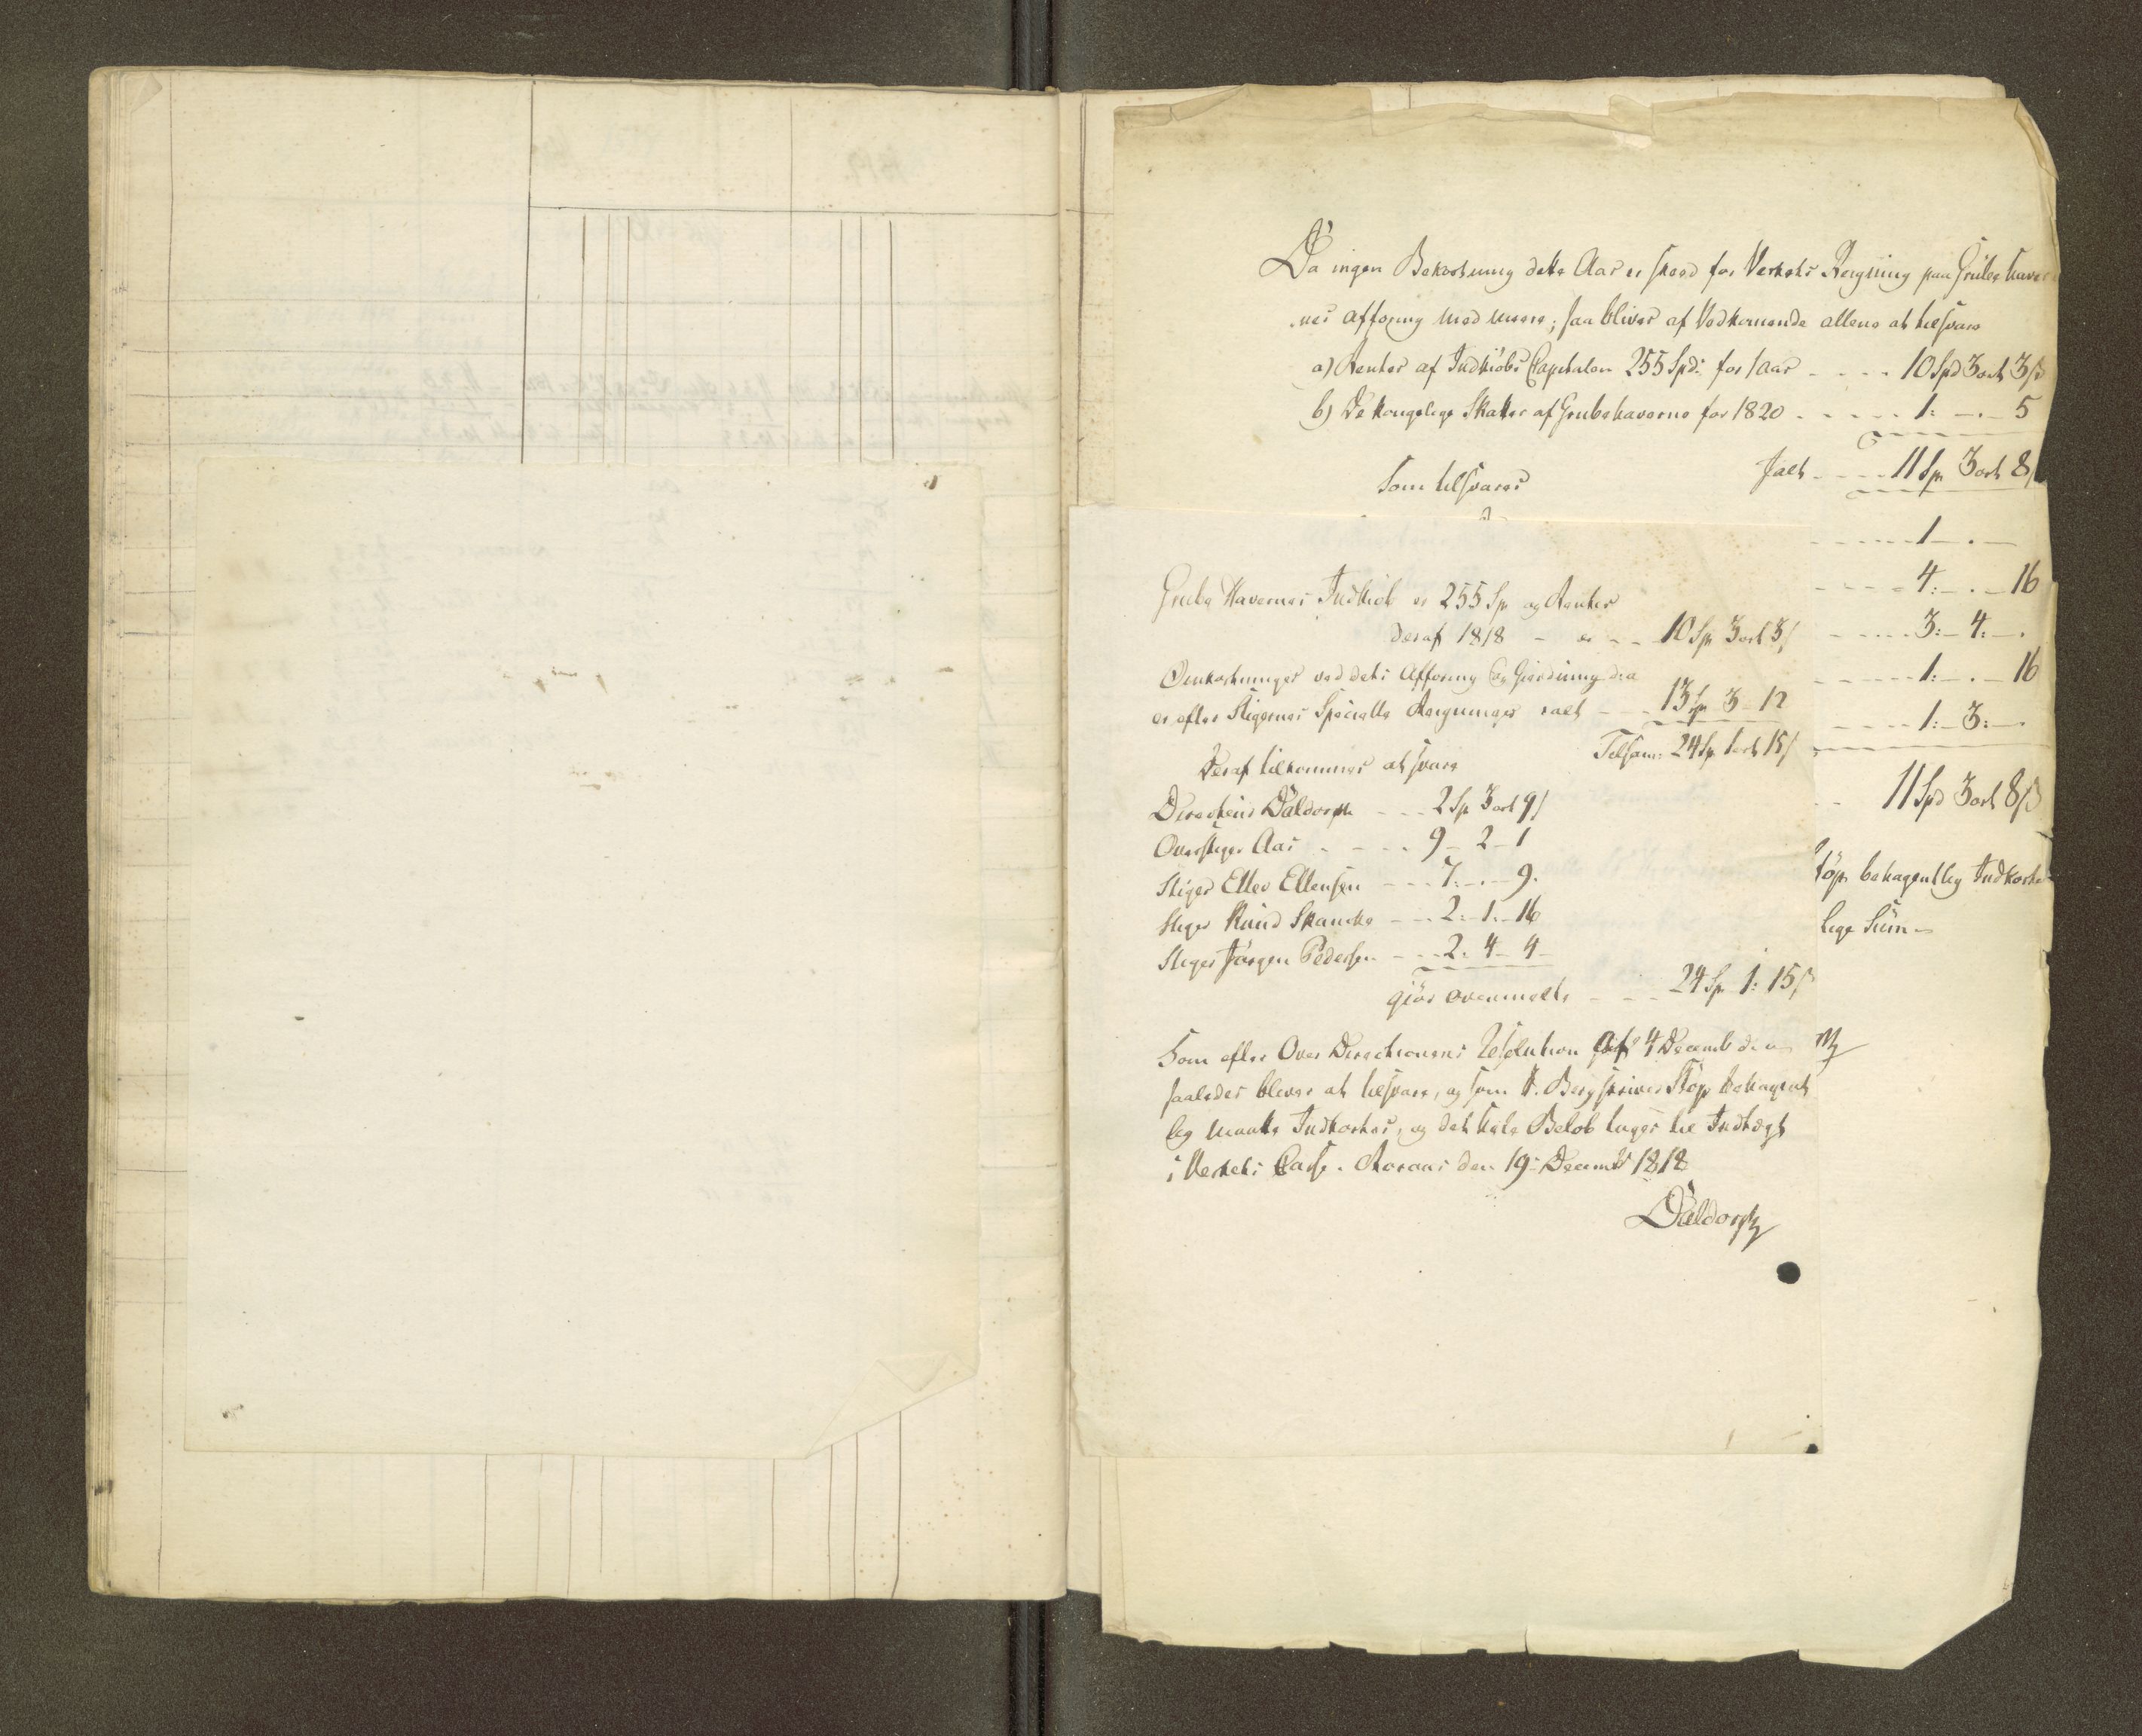 Da ingen Bekostning dette Aar er skeed for Verkets Regning paa Grube haver
nes afforing med mere; saa bliver af Vedkommende allene at tilsvare
a) Renter af Indkiöbs Capitalen 255 Spd: for 1 aar - - - - 10 Spd 3 ort 3 ß
b) De kongelige Skatter af Grubehaverne for 1820 - - - - - 1: - . - 5
Jalt - - - - 11 Sp 3 ort 8 ß
Som tilsvares
- - - - - 1 - . -
- - - - 4: - . - 16
- - - - - 3: - 4: - .
- - - - - 1: - . - 16
- - - - 1: - 3: - .
- - 11 Spd 3 ort 8 ß
Stöp behagentlig Indkorte
lige Sum -
Grube Havernes Indkiöb er 255 Sp og Renter
deraf 1818 - er - - 10 Sp 3 ort 3 ß
Omkostninger ved dets Afforing og Gierdning
er efter Stigernes Specielle Regninger ialt - - 13 Sp 3 - 12
Tilsam: 24 Sp 1 ort 15 ß
Deraf tilkommer at svare
Directeur Daldorph - - - 2 Sp 3 ort 9 ß
Overstiger Aas - - - - 9 - 2 - 1
Stiger Ellev Ellensen - - - 7: - . - 9.
Stiger Knud Skancke - - - 2: - 1: - 16
Stiger Jörgen Pedersen - - - 2: 4 - 4 -
giör ovenmelte - - - 24 Sp 1: 15 ß
Som efter Over Directionens Resolution af 4 Decemb d. a.
saaledes bliver at tilsvare, og som H. Bergskriver Stöp behagent
lig maatte Indkorter, og det hele Belöb tages til Indtægt
i Verkets Casse. Röraas den 19 Decemb 1818
Daldorph